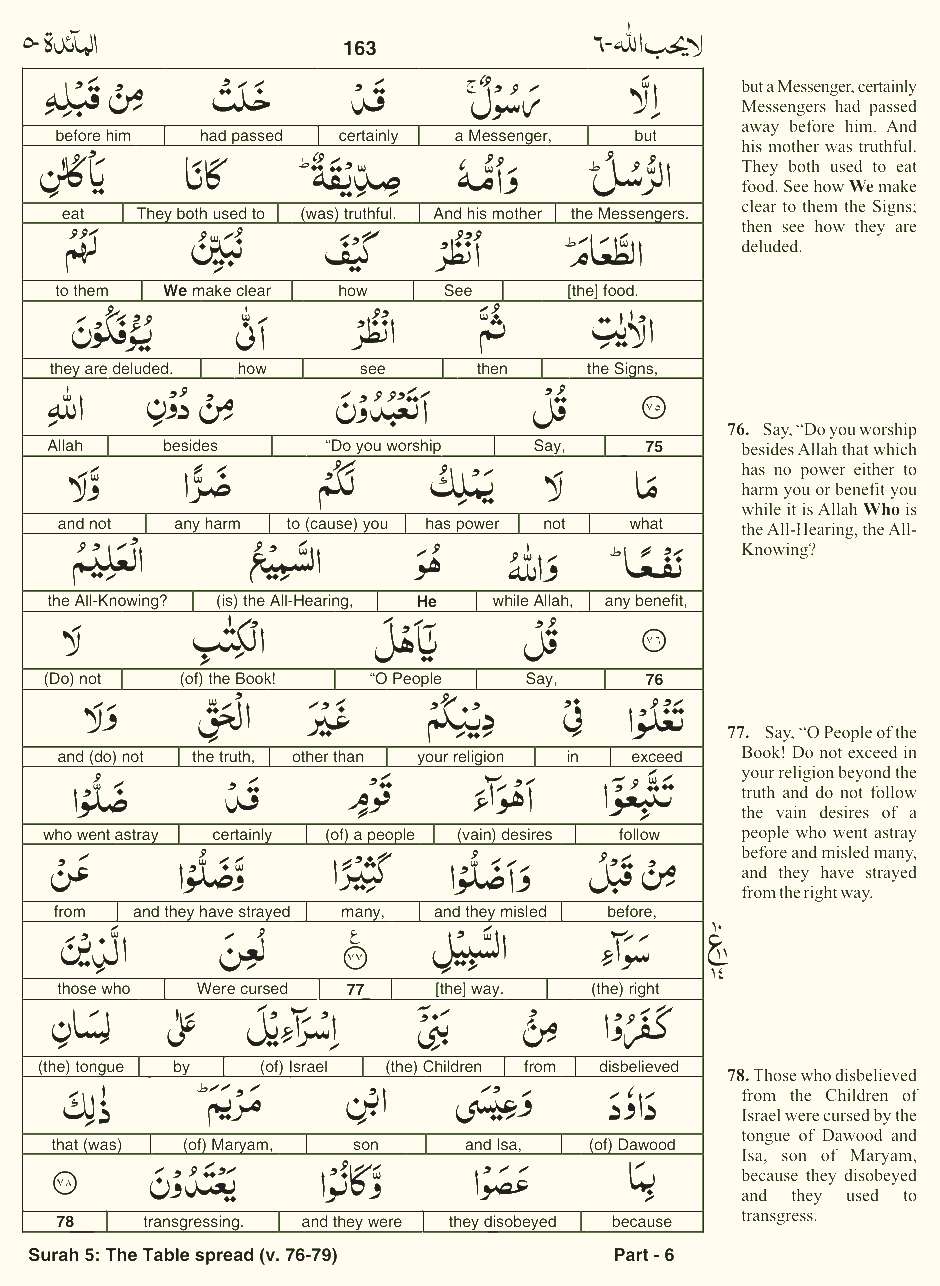 لا يحب الله-٦ 163 المآئدة-٥
اِلَّا رَسُوْلٌ ۚ قَدْ خَلَتْ مِنْ قَبْلِهِ
but a Messenger, certainly had passed before him
الرُّسُلُ ؕ وَاُمُّهٗ صِدِّيْقَةٌ ؕ كَانَا يَاْكُلٰنِ
the Messengers. And his mother (was) truthful. They both used to eat
الطَّعَامَ ؕ اُنْظُرْ كَيْفَ نُبَيِّنُ لَهُمُ
[the] food. See how We make clear to them
الْاٰيٰتِ ثُمَّ انْظُرْ اَنّٰى يُؤْفَكُوْنَ
the Signs, then see how they are deluded.
٧٥ قُلْ اَتَعْبُدُوْنَ مِنْ دُوْنِ اللّٰهِ
75 Say, “Do you worship besides Allah
مَا لَا يَمْلِكُ لَكُمْ ضَرًّا وَّلَا
what not has power to (cause) you any harm and not
نَفْعًا ؕ وَاللّٰهُ هُوَ السَّمِيْعُ الْعَلِيْمُ
any benefit, while Allah, He (is) the All-Hearing, the All-Knowing?
٧٦ قُلْ يٰۤاَهْلَ الْكِتٰبِ لَا
76 Say, “O People (of) the Book! (Do) not
تَغْلُوْا فِيْ دِيْنِكُمْ غَيْرَ الْحَقِّ وَلَا
exceed in your religion other than the truth, and (do) not
تَتَّبِعُوْۤا اَهْوَآءَ قَوْمٍ قَدْ ضَلُّوْا
follow (vain) desires (of) a people certainly who went astray
مِنْ قَبْلُ وَاَضَلُّوْا كَثِيْرًا وَّضَلُّوْا عَنْ
before, and they misled many, and they have strayed from
سَوَآءِ السَّبِيْلِ ٧٧ ع لُعِنَ الَّذِيْنَ
(the) right [the] way. 77 Were cursed those who
كَفَرُوْا مِنْۢ بَنِيْۤ اِسْرَآءِيْلَ عَلٰى لِسَانِ
disbelieved from (the) Children (of) Israel by (the) tongue
دَاوٗدَ وَعِيْسَى ابْنِ مَرْيَمَ ؕ ذٰلِكَ
(of) Dawood and Isa, son (of) Maryam, that (was)
بِمَا عَصَوْا وَّكَانُوْا يَعْتَدُوْنَ ٧٨
because they disobeyed and they were transgressing. 78
but a Messenger, certainly
Messengers had passed
away before him. And
his mother was truthful.
They both used to eat
food. See how We make
clear to them the Signs;
then see how they are
deluded.
76. Say, “Do you worship
besides Allah that which
has no power either to
harm you or benefit you
while it is Allah Who is
the All-Hearing, the All-
Knowing?
77. Say, “O People of the
Book! Do not exceed in
your religion beyond the
truth and do not follow
the vain desires of a
people who went astray
before and misled many,
and they have strayed
from the right way.
١٠
ع ١١
١٤
78. Those who disbelieved
from the Children of
Israel were cursed by the
tongue of Dawood and
Isa, son of Maryam,
because they disobeyed
and they used to
transgress.
Surah 5: The Table spread (v. 76-79) Part - 6